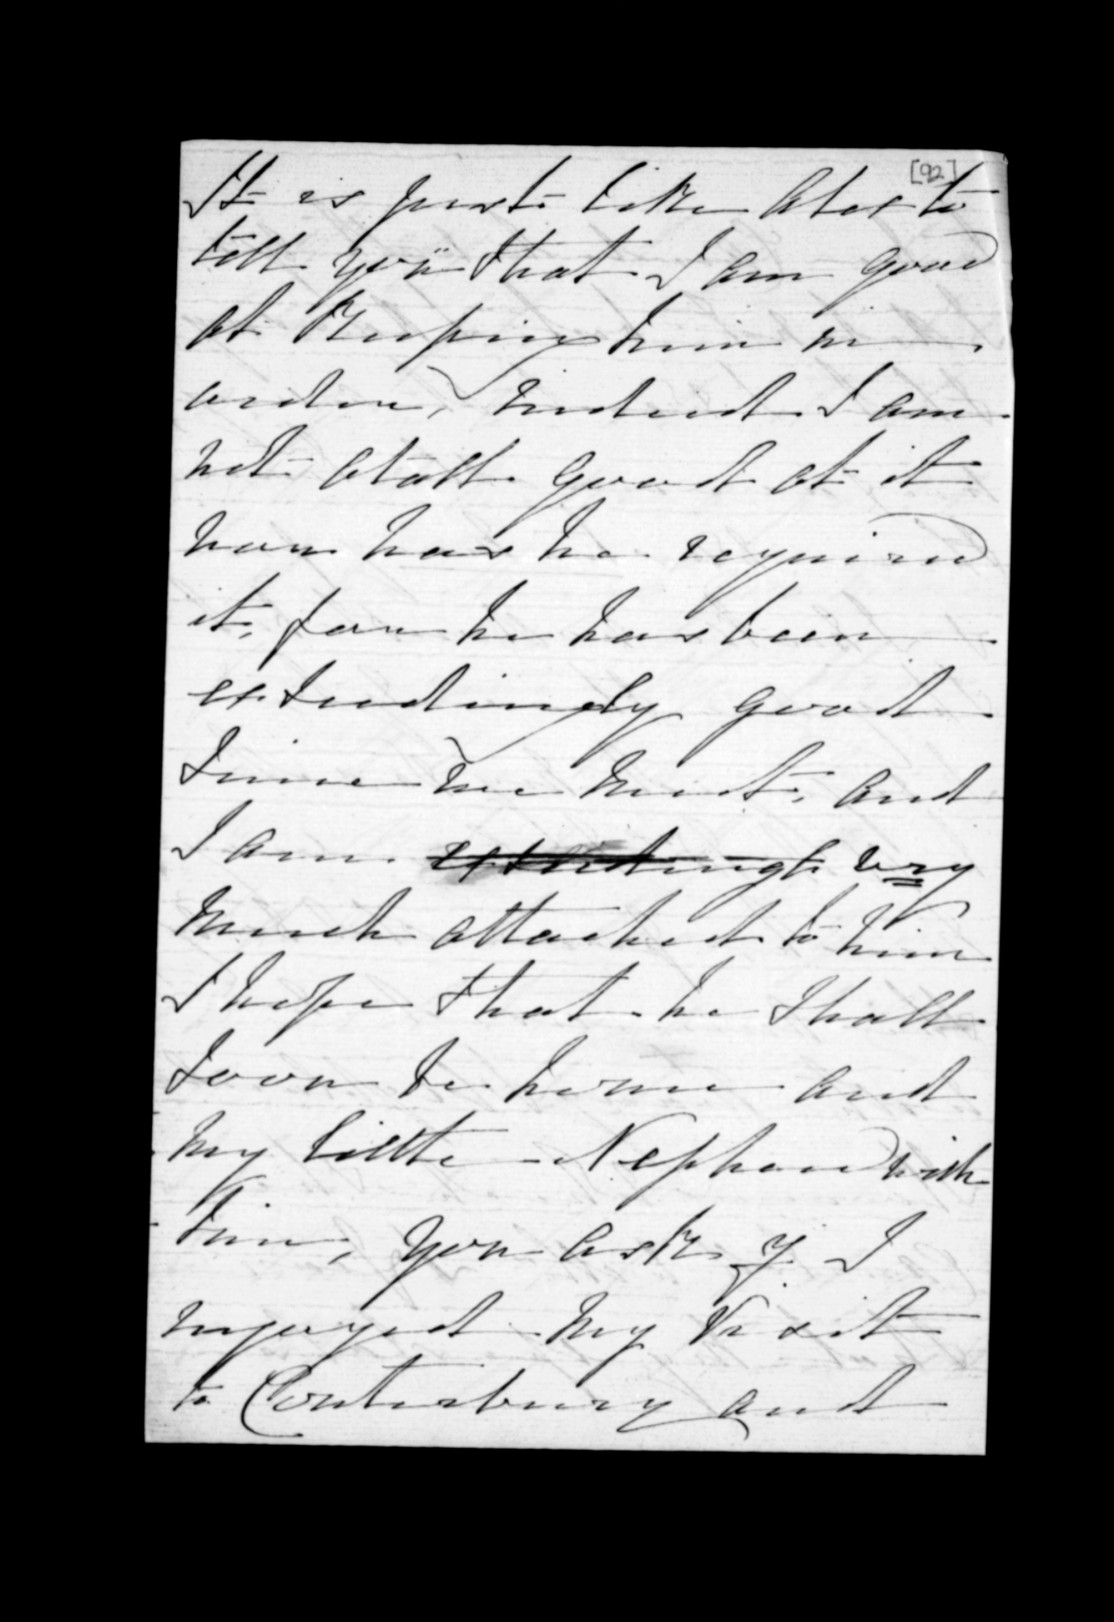 [92]
It is just like Alex to
tell you that I am good
at Keeping him in
order, indeed I am
not atall good at it
nor has he required
it, for he has been
exteedingly good
sinse we meet, and
I am extedingly very
much attached to him
I hope that he shall
soon be home and
my little Nephew with
him, you ask if I
injoyed my visit
to Conterbury and